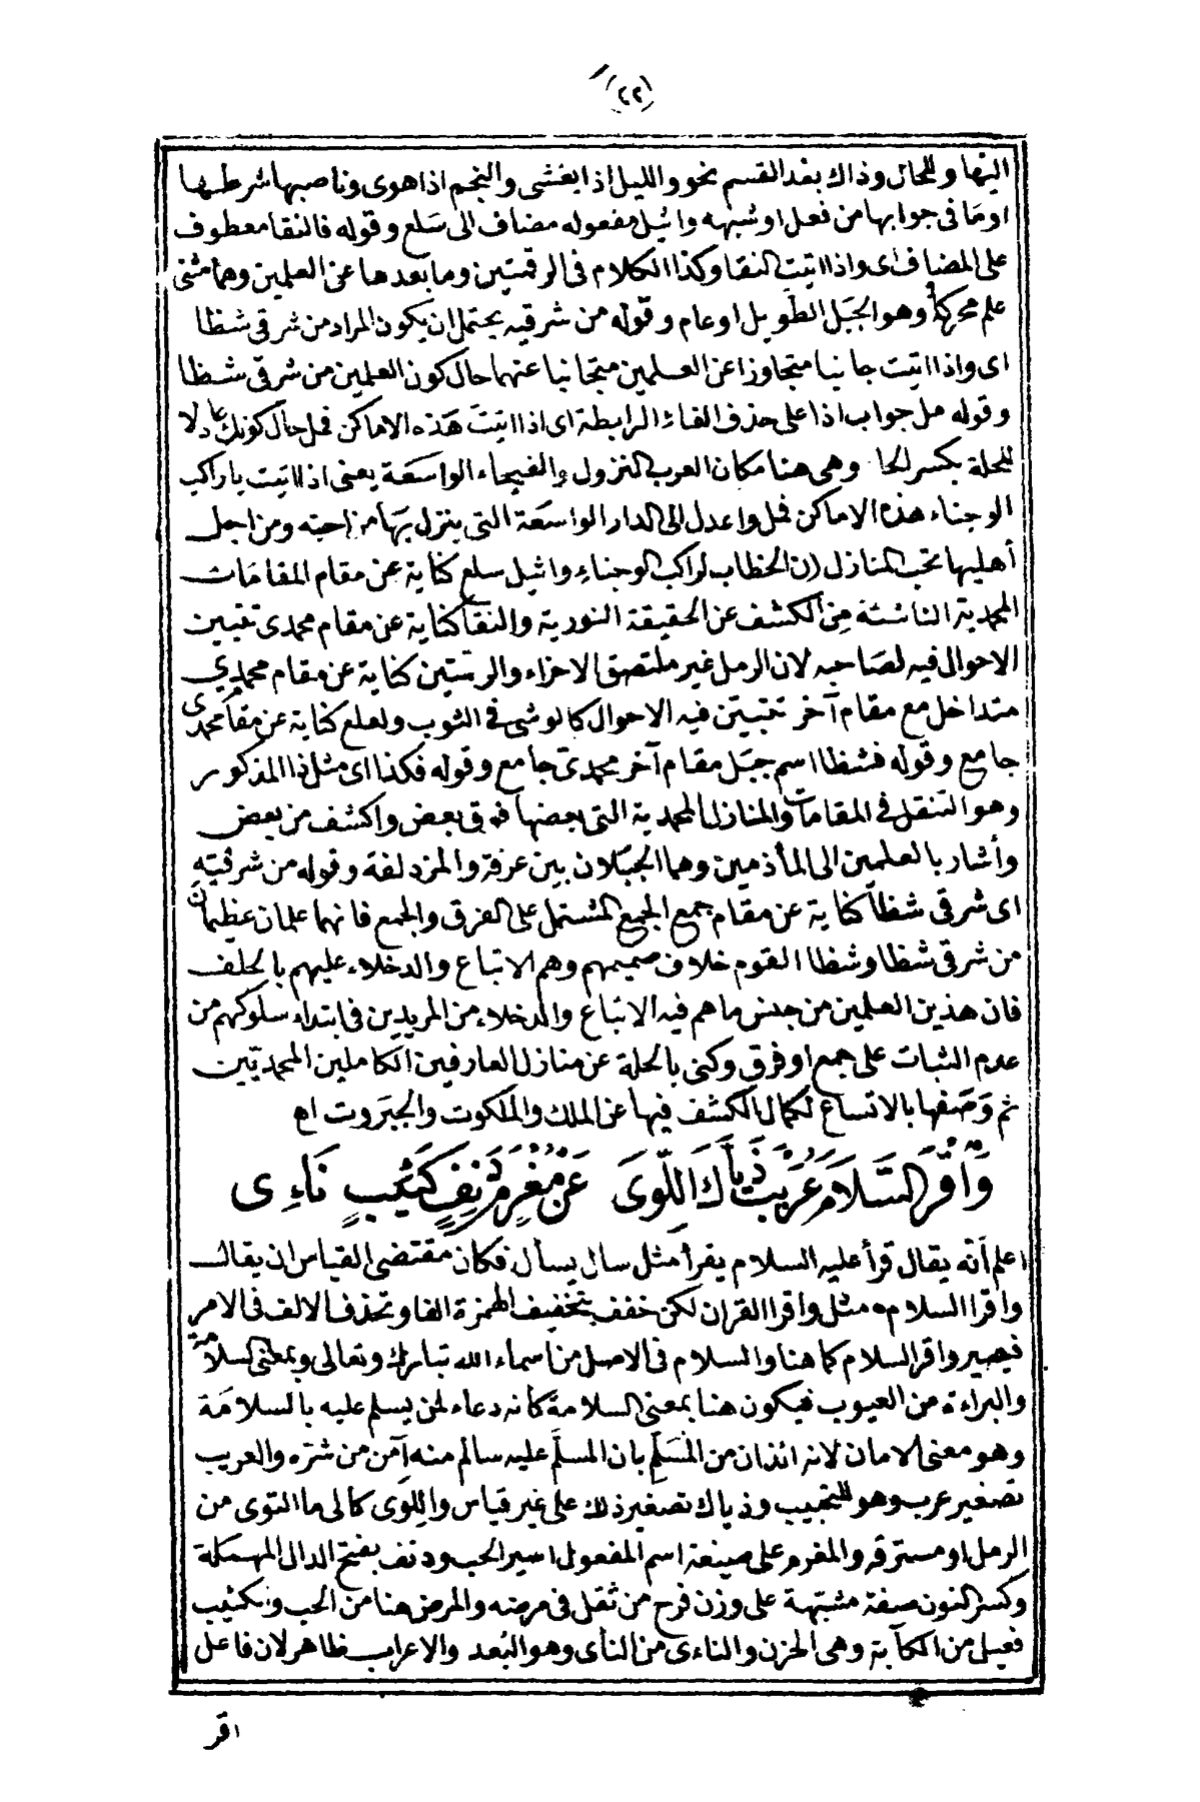 (٢٢)
اليها وللحال وذاك بعد القسم نحو والليل اذا يغشى والنجم اذا هوى وناصبها شرطها
او ما فى جوابها من فعل او شبهه واثيل مفعوله مضاف الى سلع وقوله فالنقا معطوف
على المضاف اى واذا اتيت النقا وكذا الكلام فى الرقمتين وما بعدها عن العلمين وهما مثنى
علم محركة وهو الجبل الطويل او عام وقوله من شرقيه يحتمل ان يكون المراد من شرقى شظا
اى واذا اتيت جانبا متجاوزا عن العلمين متجانبا عنهما حال كون العلمين من شرقى شظا
وقوله مل جواب اذا على حذف الفاء الرابطة اى اذا اتيت هذه الاماكن فمل حال كونك عادلا
للحلة بكسر الحا وهى هنا مكان العرب النزول والفيحاء الواسعة يعنى اذا اتيت يا راكب
الوجناء هذه الاماكن فمل واعدل الى الدار الواسعة التى ينزل بها من احبه ومن اجل
أهليها تحب المنازل ان الخطاب لراكب الوجناء واثيل سلع كناية عن مقام المقامات
المحمدية الناشئة من الكشف عن الحقيقة النورية والنقا كناية عن مقام محمدى تتبين
الاحوال فيه لصاحبه لان الرمل غير ملتصق الاجزاء والرقمتين كناية عن مقام محمدي
متداخل مع مقام آخر تتبين فيه الاحوال كالوشى فى الثوب ولعلع كناية عن مقام محمدى
جامع وقوله فشظا اسم جبل مقام آخر محمدى جامع وقوله فكذا اى مثل ذا المذكور
وهو التنقل فى المقامات والمنازل المحمدية التى بعضها فوق بعض واكشف من بعض
وأشار بالعلمين الى المأذمين وهما الجبلان بين عرفة والمزدلفة وقوله من شرقيه
اى شرقى شظا كناية عن مقام جمع الجمع المشتمل على الفرق والجمع فانهما علمان عظيمان
من شرقى شظا وشظا القوم خلاف صميمهم وهم الاتباع والدخلاء عليهم بالحلف
فان هذين العلمين من جنس ما هم فيه الاتباع والدخلاء من المريدين فى ابتداء سلوكهم من
عدم الثبات على جمع او فرق وكنى بالحلة عن منازل العارفين الكاملين المحمديين
ثم وصفها بالاتساع لكمال الكشف فيها عن الملك والملكوت والجبروت اه
وَاقْرَ السَّلَامَ عُرَيْبَ ذَيَّاكَ اللِّوَى عَنْ مُغْرَمٍ دَنِفٍ كَئِيبٍ نَاءِى
اعلم أنه يقال قرأ عليه السلام يقرأ مثل سال يسأل فكان مقتضى القياس ان يقال
واقرا السلام مثل واقرا القران لكن خفف بتخفيف الهمزة الفا وتحذف الالف فى الامر
فيصير واقر السلام كما هنا والسلام فى الاصل من اسماء الله تبارك وتعالى وبمعنى السلامة
والبراءة من العيوب فيكون هنا بمعنى السلامة كانه دعاء لمن يسلم عليه بالسلامة
وهو معنى الامان لانه ائذان من المسَلِّم بان المسلَّم عليه سالم منه آمن من شره والعريب
تصغير عرب وهو للتحبيب وذياك تصغير ذلك على غير قياس واللِوَى كالى ما التوى من
الرمل او مسترقه والمغرم على صيغة اسم المفعول اسير الحب ودنف بفتح الدال المهملة
وكسر النون صفة مشبهة على وزن فرح من ثقل فى مرضه والمرض هنا من الحب والكئيب
فعيل من الكآبة وهى الحزن والناءى من النأى وهو البُعد والاعراب ظاهر لان فاعل
اقر